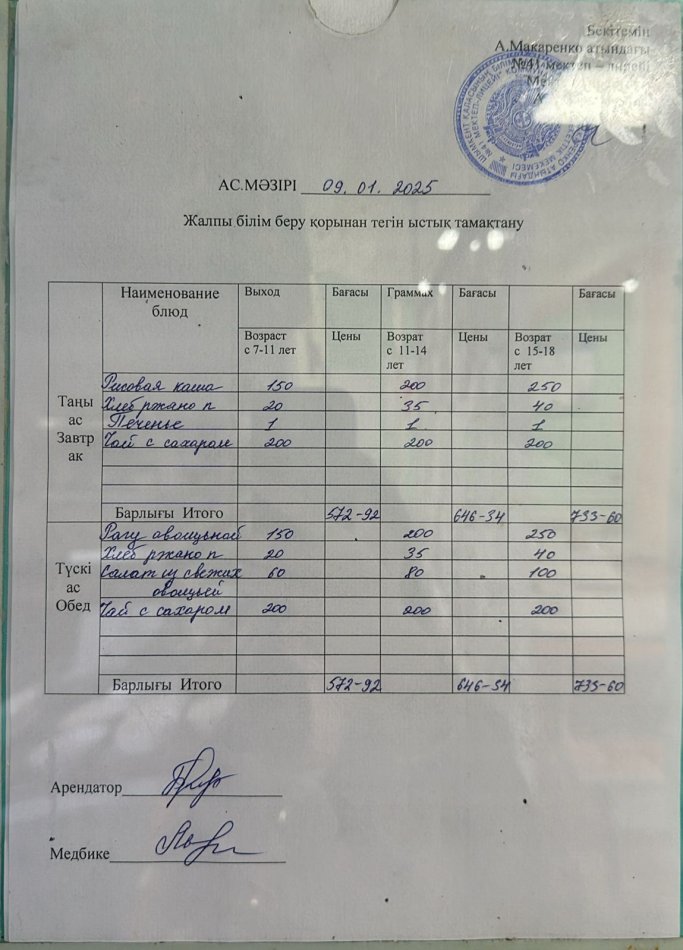 Бекітемін
А.Макаренко атындағы
№41 мектеп – лицейі
АС.МӘЗІРІ 09.01.2025
Жалпы білім беру қорынан тегін ыстық тамақтану
Наименование блюд Выход Бағасы Граммах Бағасы Бағасы
Возраст с 7-11 лет Цены Возрат с 11-14 лет Цены Возрат с 15-18 лет Цены
Таңы ас Завтр ак
Рисовая каша 150 200 250
Хлеб ржано п 20 35 40
Печенье 1 1 1
Чай с сахаром 200 200 200
Барлығы Итого 572-92 646-34 733-60
Түскі ас Обед
Рагу овощьной 150 200 250
Хлеб ржано п 20 35 40
Салат из свежих 60 80 100
овощьей
Чай с сахаром 200 200 200
Барлығы Итого 572-92 646-34 733-60
Арендатор
Медбике